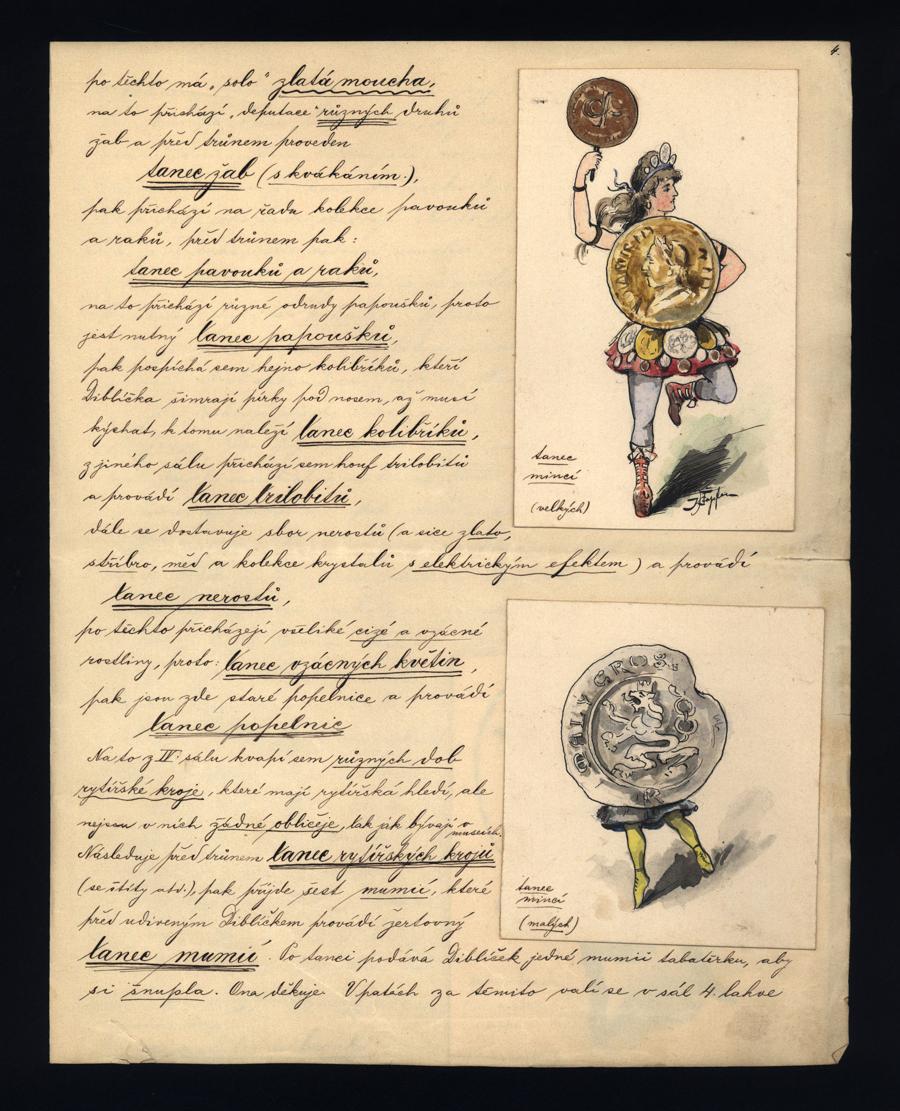 4.
po těchto má „solo“ zlatá moucha,
na to přichází „deputace“ různých druhů
žab a před trůnem proveden
tanec žab (s kvákáním.),
pak přichází na řadu kolekce pavouků
a raků, před trůnem pak:
tanec pavouků a raků,
na to přichází různé odrudy papoušků, proto
jest nutný tanec papoušků,
pak pospíchá sem hejno kolibříků, kteří
Diblíčka šimrají pírky pod nosem, až musí
kýchat, k tomu naleží tanec kolibříků,
z jiného sálu přichází sem houf trilobitů
a provádí tanec trilobitů,
dále se dostavuje sbor nerostů (a sice zlato,
stříbro, měď a kolekce krystalů s elektrickým efektem) a provádí
tanec nerostů,
po těchto přicházejí všeliké cizé a vzácné
rostliny, proto: tanec vzácných květin,
pak jsou zde staré popelnice a provádí
tanec popelnic
Na to z IV. sálu kvapí sem různých dob
rytířské kroje, které mají rytířská hledí, ale
nejsou v nich žádné obličeje, tak jak bývají v museích.
Následuje před trůnem tanec rytířských krojů
(se štíty atd.), pak přijde šest mumií, které
před udiveným Diblíčkem provádí žertovný
tanec mumií. Po tanci podává Diblíček jedné mumii tabatěrku, aby
si šnupla. Ona děkuje. V patách za těmito valí se v sál 4. lahve
DIARISID
tanec
mincí
(velkých)
MALY GROS
tanec
mincí
(malých)